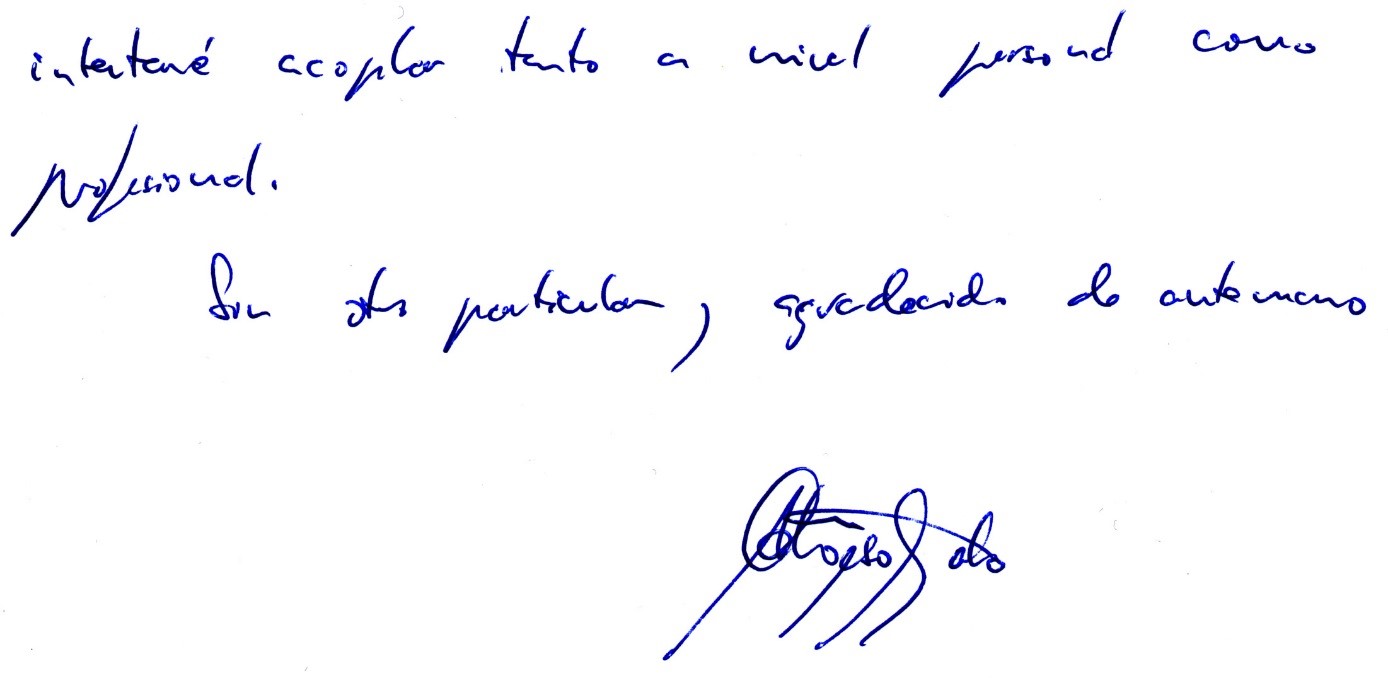 intentaré acoplar tanto a nivel personal como
profesional.
Sin otro particular, agradecido de antemano